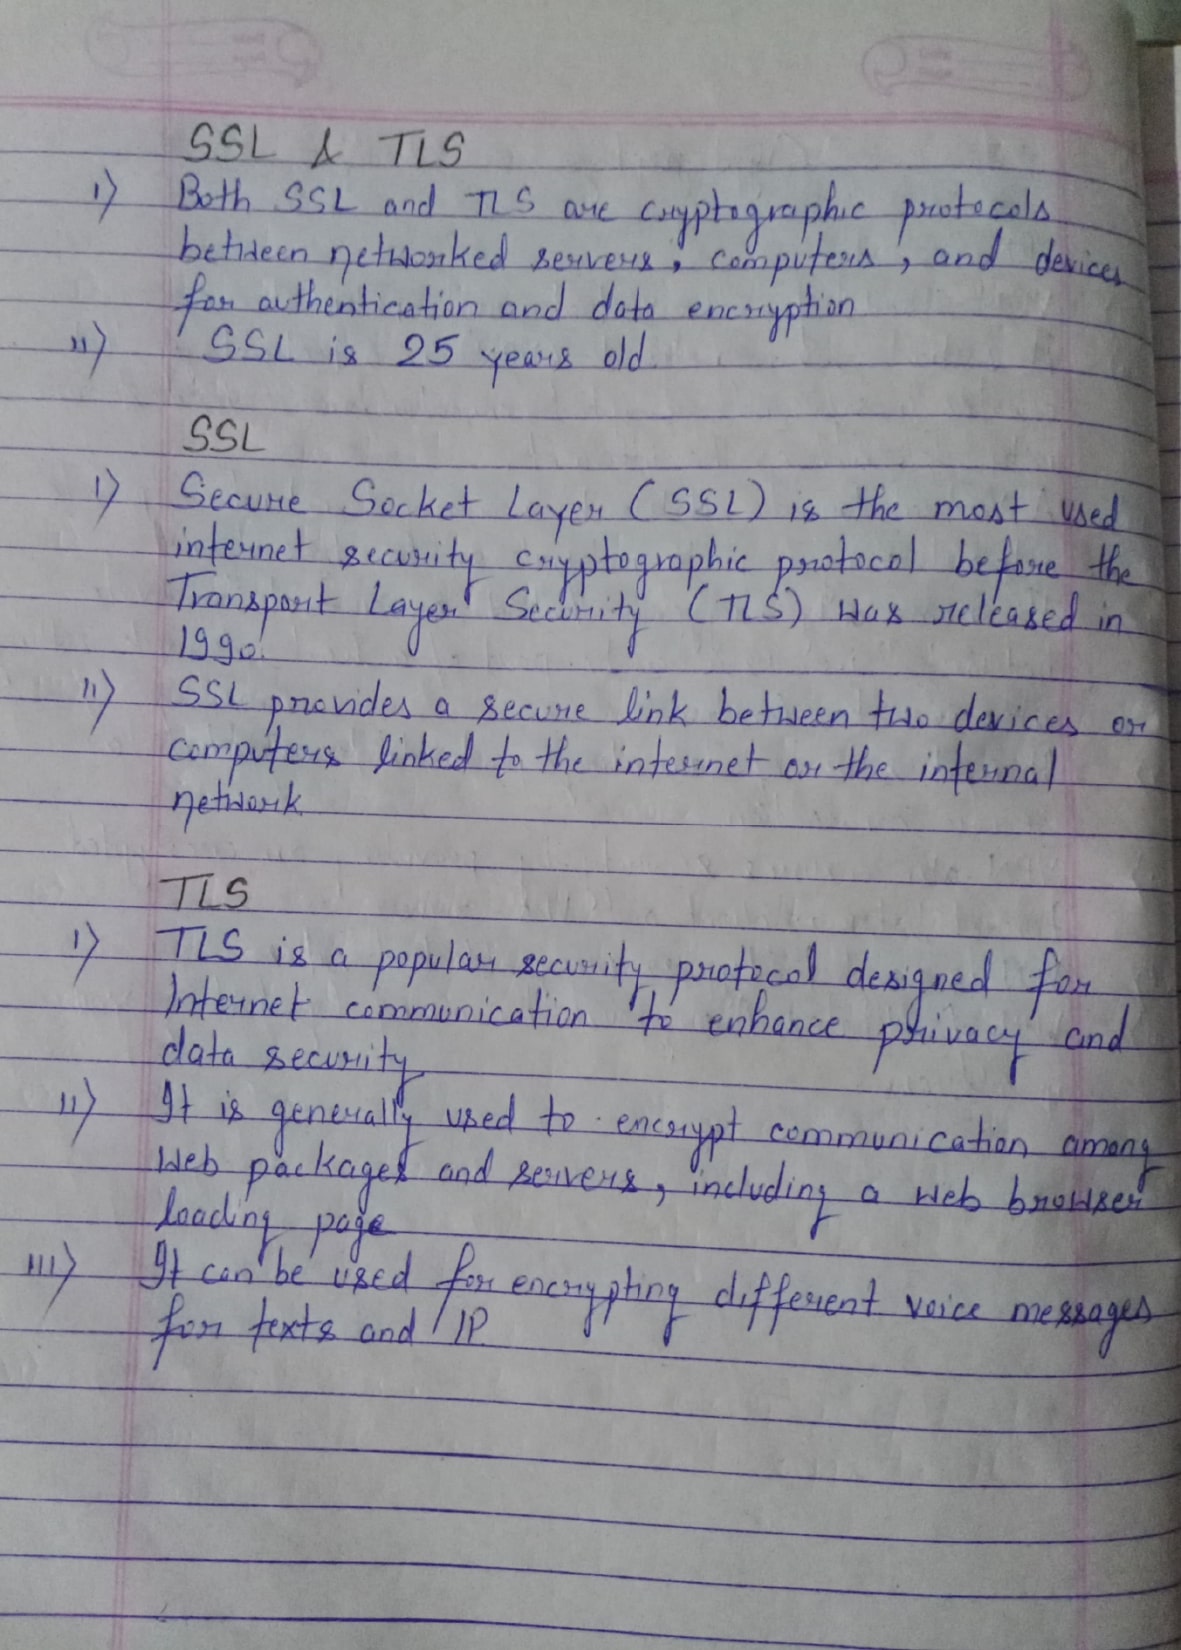 SSL & TLS
i) Both SSL and TLS are cryptographic protocols
between networked servers, computers, and devices
for authentication and data encryption
ii) SSL is 25 years old.
SSL
i) Secure Socket Layer (SSL) is the most used
internet security cryptographic protocol before the
Transport Layer Security (TLS) was released in
1990.
ii) SSL provides a secure link between two devices or
computers linked to the internet or the internal
network
TLS
i) TLS is a popular security protocol designed for
Internet communication to enhance privacy and
data security
ii) It is generally used to encrypt communication among
Web packages and servers, including a web browser
loading page
iii) It can be used for encrypting different voice messages
for texts and IP